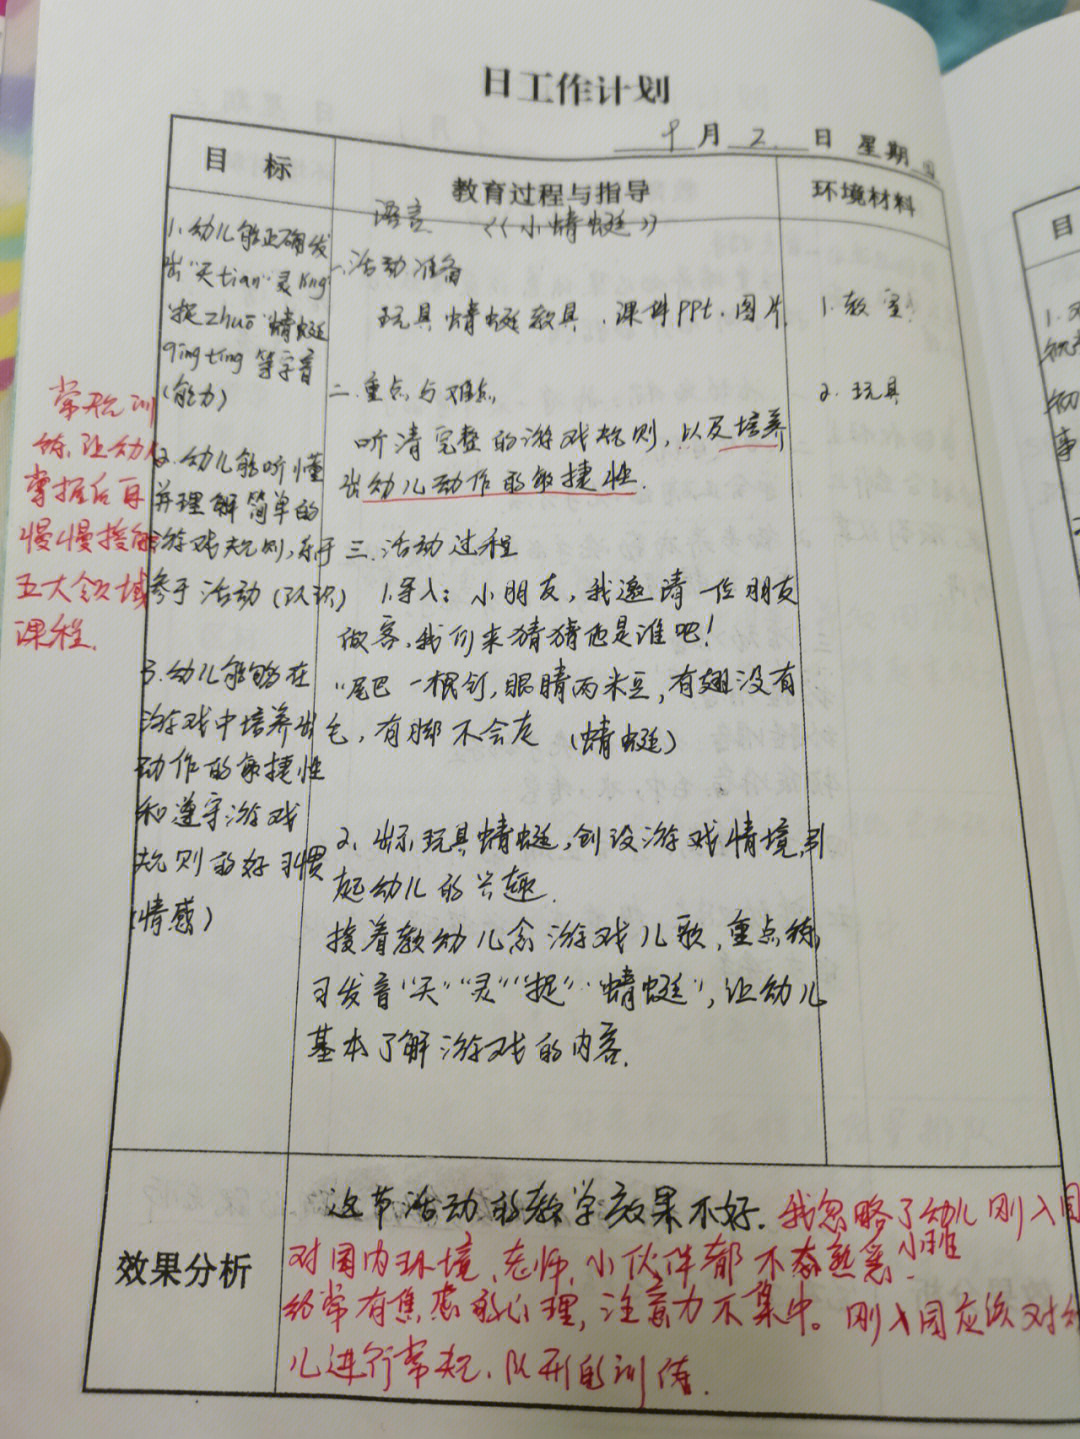 日工作计划
月 2 日 星期四
目 标
教育过程与指导
环境材料
1.幼儿能正确发
出"天tian"灵ling
"捉zhuō"蜻蜓
qing ting 等字音
(能力)
2.幼儿能听懂
并理解简单的
游戏规则,乐于
参于活动(认识)
3.幼儿能够在
游戏中培养出
动作的敏捷性
和遵守游戏
规则的好习惯
(情感)
常规训
练,让幼儿
掌握后再
慢慢接触
五大领域
课程.
语言 《小蜻蜓》
一.活动准备
玩具蜻蜓教具、课件PPT、图片
二.重点与难点
听清完整的游戏规则,以及培养
出幼儿动作的敏捷性.
三.活动过程
1.导入:小朋友,我邀请一位朋友
做客,我们来猜猜他是谁吧!
"尾巴一根钉,眼睛两米豆,有翅没有
毛,有脚不会走(蜻蜓)
2、出示玩具蜻蜓,创设游戏情境,引
起幼儿的兴趣.
接着教幼儿念游戏儿歌,重点练
习发音"天""灵""捉""蜻蜓",让幼儿
基本了解游戏的内容.
1.教室
2.玩具
效果分析
这节活动的教学效果不好.我忽略了幼儿刚入园
对园内环境、老师、小伙伴都不太熟悉.小班
经常有焦虑的心理,注意力不集中。刚入园应该对幼
儿进行常规、队形的训练.
目
1.